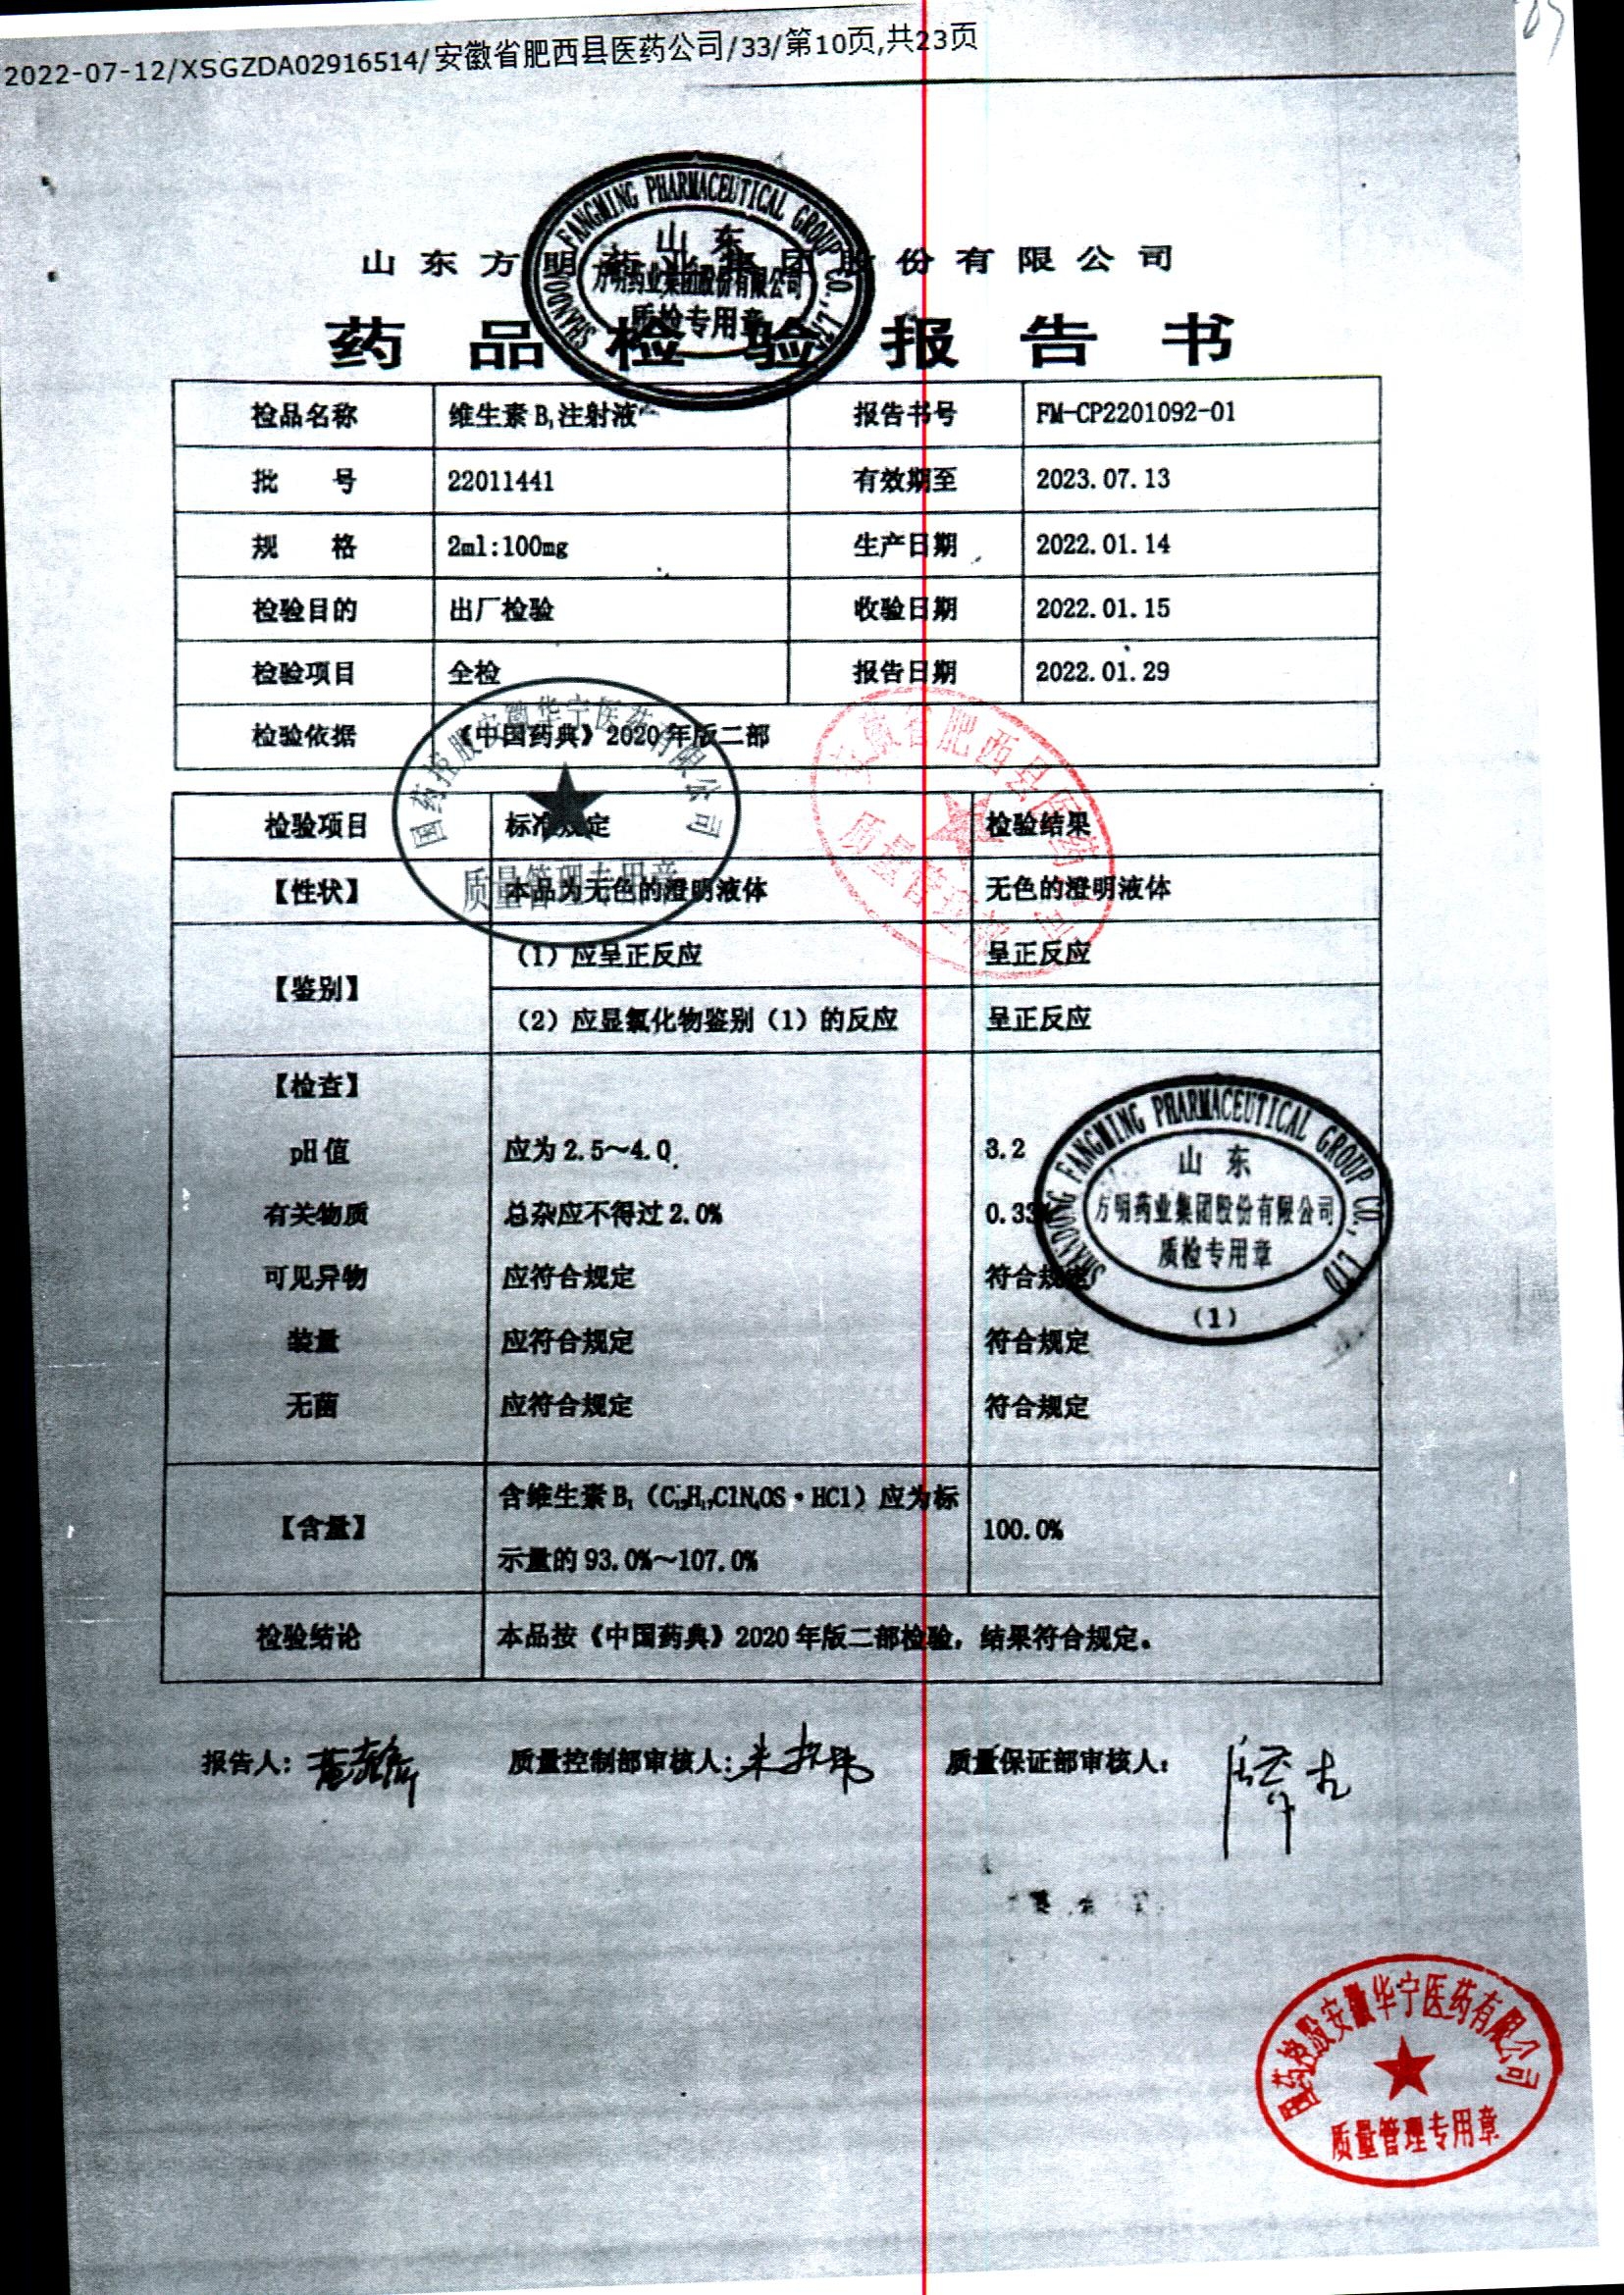 2022-07-12/XSGZDA02916514/安徽省肥西县医药公司/33/第10页,共23页
山东方明药业集团股份有限公司
药品检验报告书
SHANDONG FANGMING PHARMACEUTICAL GROUP CO., LTD
山东
方明药业集团股份有限公司
质检专用章
检品名称 维生素B₁注射液 报告书号 FM-CP2201092-01
批号 22011441 有效期至 2023.07.13
规格 2ml:100mg 生产日期 2022.01.14
检验目的 出厂检验 收验日期 2022.01.15
检验项目 全检 报告日期 2022.01.29
检验依据 《中国药典》2020年版二部
国药控股安徽华宁医药有限公司
质量管理专用章
安徽省肥西县医药公司
质量管理
检验项目 标准规定 检验结果
【性状】 本品为无色的澄明液体 无色的澄明液体
【鉴别】 (1)应呈正反应 呈正反应
(2)应显氯化物鉴别(1)的反应 呈正反应
【检查】
pH值 应为2.5~4.0 3.2
有关物质 总杂应不得过2.0% 0.33%
可见异物 应符合规定 符合规定
装量 应符合规定 符合规定
无菌 应符合规定 符合规定
SHANDONG FANGMING PHARMACEUTICAL GROUP CO., LTD
山东
方明药业集团股份有限公司
质检专用章
(1)
【含量】 含维生素B₁(C₁₂H₁₇ClN₄OS·HCl)应为标
示量的93.0%~107.0% 100.0%
检验结论 本品按《中国药典》2020年版二部检验,结果符合规定。
报告人: 质量控制部审核人: 质量保证部审核人:
国药控股安徽华宁医药有限公司
质量管理专用章